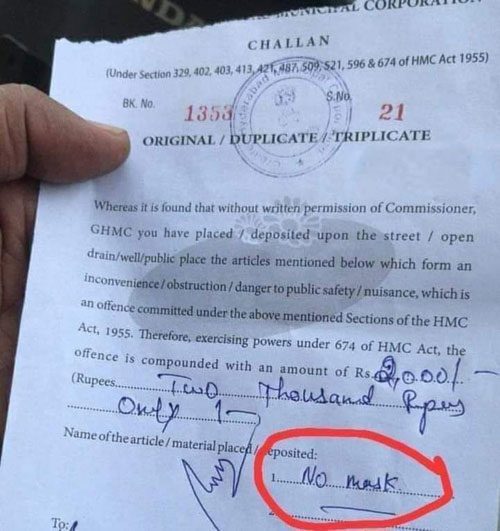 MUNICIPAL CORPORATION
CHALLAN
(Under Section 329, 402, 403, 413, 421, 487, 509, 521, 596 & 674 of HMC Act 1955)
BK. No. 1353 S.No. 21
ORIGINAL / DUPLICATE / TRIPLICATE
Whereas it is found that without written permission of Commissioner,
GHMC you have placed / deposited upon the street / open
drain/well/public place the articles mentioned below which form an
inconvenience / obstruction / danger to public safety / nuisance, which is
an offence committed under the above mentioned Sections of the HMC
Act, 1955. Therefore, exercising powers under 674 of HMC Act, the
offence is compounded with an amount of Rs. 2,000/-
(Rupees Two Thousand Rupees
Only /-
Name of the article / material placed / deposited:
1. No mask
2.
To: